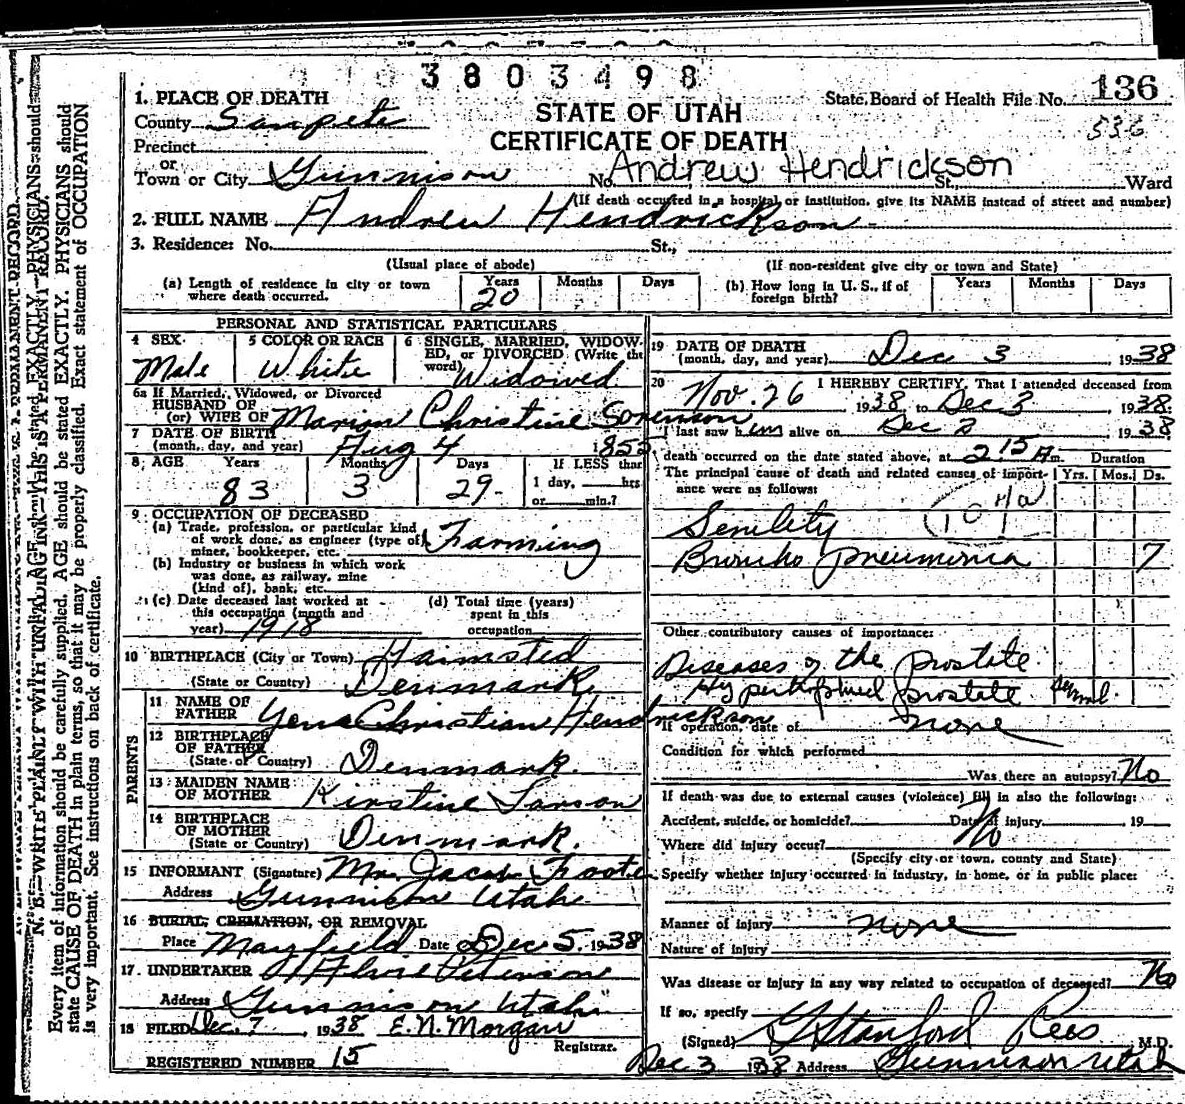 3803498
136
536
1. PLACE OF DEATH
STATE OF UTAH
State Board of Health File No.
County Sanpete
CERTIFICATE OF DEATH
Precinct
or
Andrew Hendrickson
Town or City Gunnison No. St., Ward
(If death occurred in a hospital or institution, give its NAME instead of street and number)
2. FULL NAME Andrew Hendrickson
3. Residence: No. St.,
(Usual place of abode) (If non-resident give city or town and State)
(a) Length of residence in city or town where death occurred. Years 20 Months Days
(b) How long in U. S., if of foreign birth? Years Months Days
PERSONAL AND STATISTICAL PARTICULARS
4 SEX Male
5 COLOR OR RACE White
6 SINGLE, MARRIED, WIDOWED, or DIVORCED (Write the word) Widowed
6a If Married, Widowed, or Divorced
HUSBAND OF
(or) WIFE OF Marion Christine Sorenson
7 DATE OF BIRTH
(month, day, and year) Aug 4 1855
8 AGE Years 83 Months 3 Days 29
If LESS than
1 day, hrs
or min.?
9 OCCUPATION OF DECEASED
(a) Trade, profession, or particular kind
of work done, as engineer (type of)
miner, bookkeeper, etc. Farming
(b) Industry or business in which work
was done, as railway, mine
(kind of), bank, etc.
(c) Date deceased last worked at
this occupation (month and
year) 1918
(d) Total time (years)
spent in this
occupation
10 BIRTHPLACE (City or Town)
(State or Country) Denmark
PARENTS
11 NAME OF
FATHER Christian Hendrickson
12 BIRTHPLACE
OF FATHER
(State or Country) Denmark.
13 MAIDEN NAME
OF MOTHER Kirstine Larson
14 BIRTHPLACE
OF MOTHER
(State or Country) Denmark.
15 INFORMANT (Signature) Mr. Jacob
Address Gunnison Utah
16 BURIAL, CREMATION, OR REMOVAL
Place Mayfield Date Dec 5. 1938
17. UNDERTAKER
Address Gunnison Utah
18 FILED Dec. 7, 1938 E. N. Morgan
Registrar.
REGISTERED NUMBER 15
19 DATE OF DEATH
(month, day, and year) Dec 3 1938
20 I HEREBY CERTIFY, That I attended deceased from
Nov. 26 1938 to Dec 3, 1938.
I last saw him alive on Dec 2 1938
death occurred on the date stated above, at 2 15 A m. Duration
The principal cause of death and related causes of importance were as follows: Yrs. Mos. Ds.
107a
Senility
Broncho pneumonia 7
Other contributory causes of importance:
Diseases of the prostate
Hypertrophied prostate
If operation, date of none
Condition for which performed
Was there an autopsy? No
If death was due to external causes (violence) fill in also the following:
Accident, suicide, or homicide? Date of injury, 19
No
Where did injury occur?
(Specify city or town, county and State)
Specify whether injury occurred in industry, in home, or in public place:
Manner of injury none
Nature of injury
Was disease or injury in any way related to occupation of deceased? No
If so, specify
(Signed) G Stanford Rees M.D.
Dec 3 1938 Address Gunnison Utah
N. B.—WRITE PLAINLY WITH UNFADING INK—THIS IS A PERMANENT RECORD.
Every item of information should be carefully supplied. AGE should be stated EXACTLY. PHYSICIANS should
state CAUSE OF DEATH in plain terms, so that it may be properly classified. Exact statement of OCCUPATION
is very important. See instructions on back of certificate.